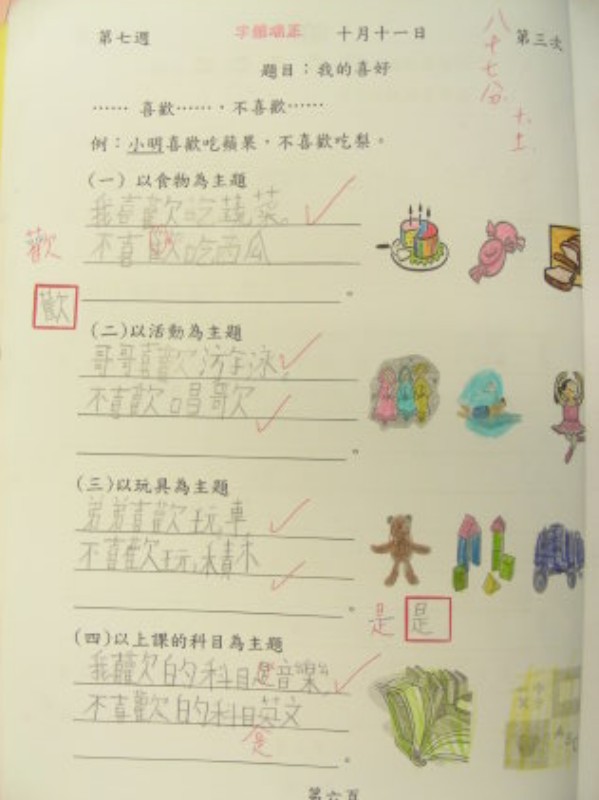 第七週 字體端正 十月十一日 第三次
八十七分
十.土
題目：我的喜好
⋯⋯ 喜歡⋯⋯，不喜歡⋯⋯
例：小明喜歡吃蘋果，不喜歡吃梨。
(一) 以食物為主題
我喜歡吃蔬菜。
歡
不喜歡吃西瓜
歡
。
(二)以活動為主題
哥哥喜歡游泳，
不喜歡唱歌
。
(三)以玩具為主題
弟弟喜歡玩車
不喜歡玩積木
。
是 是
(四)以上課的科目為主題
我喜歡的科目是音樂，
不喜歡的科目英文
是
。
第六頁